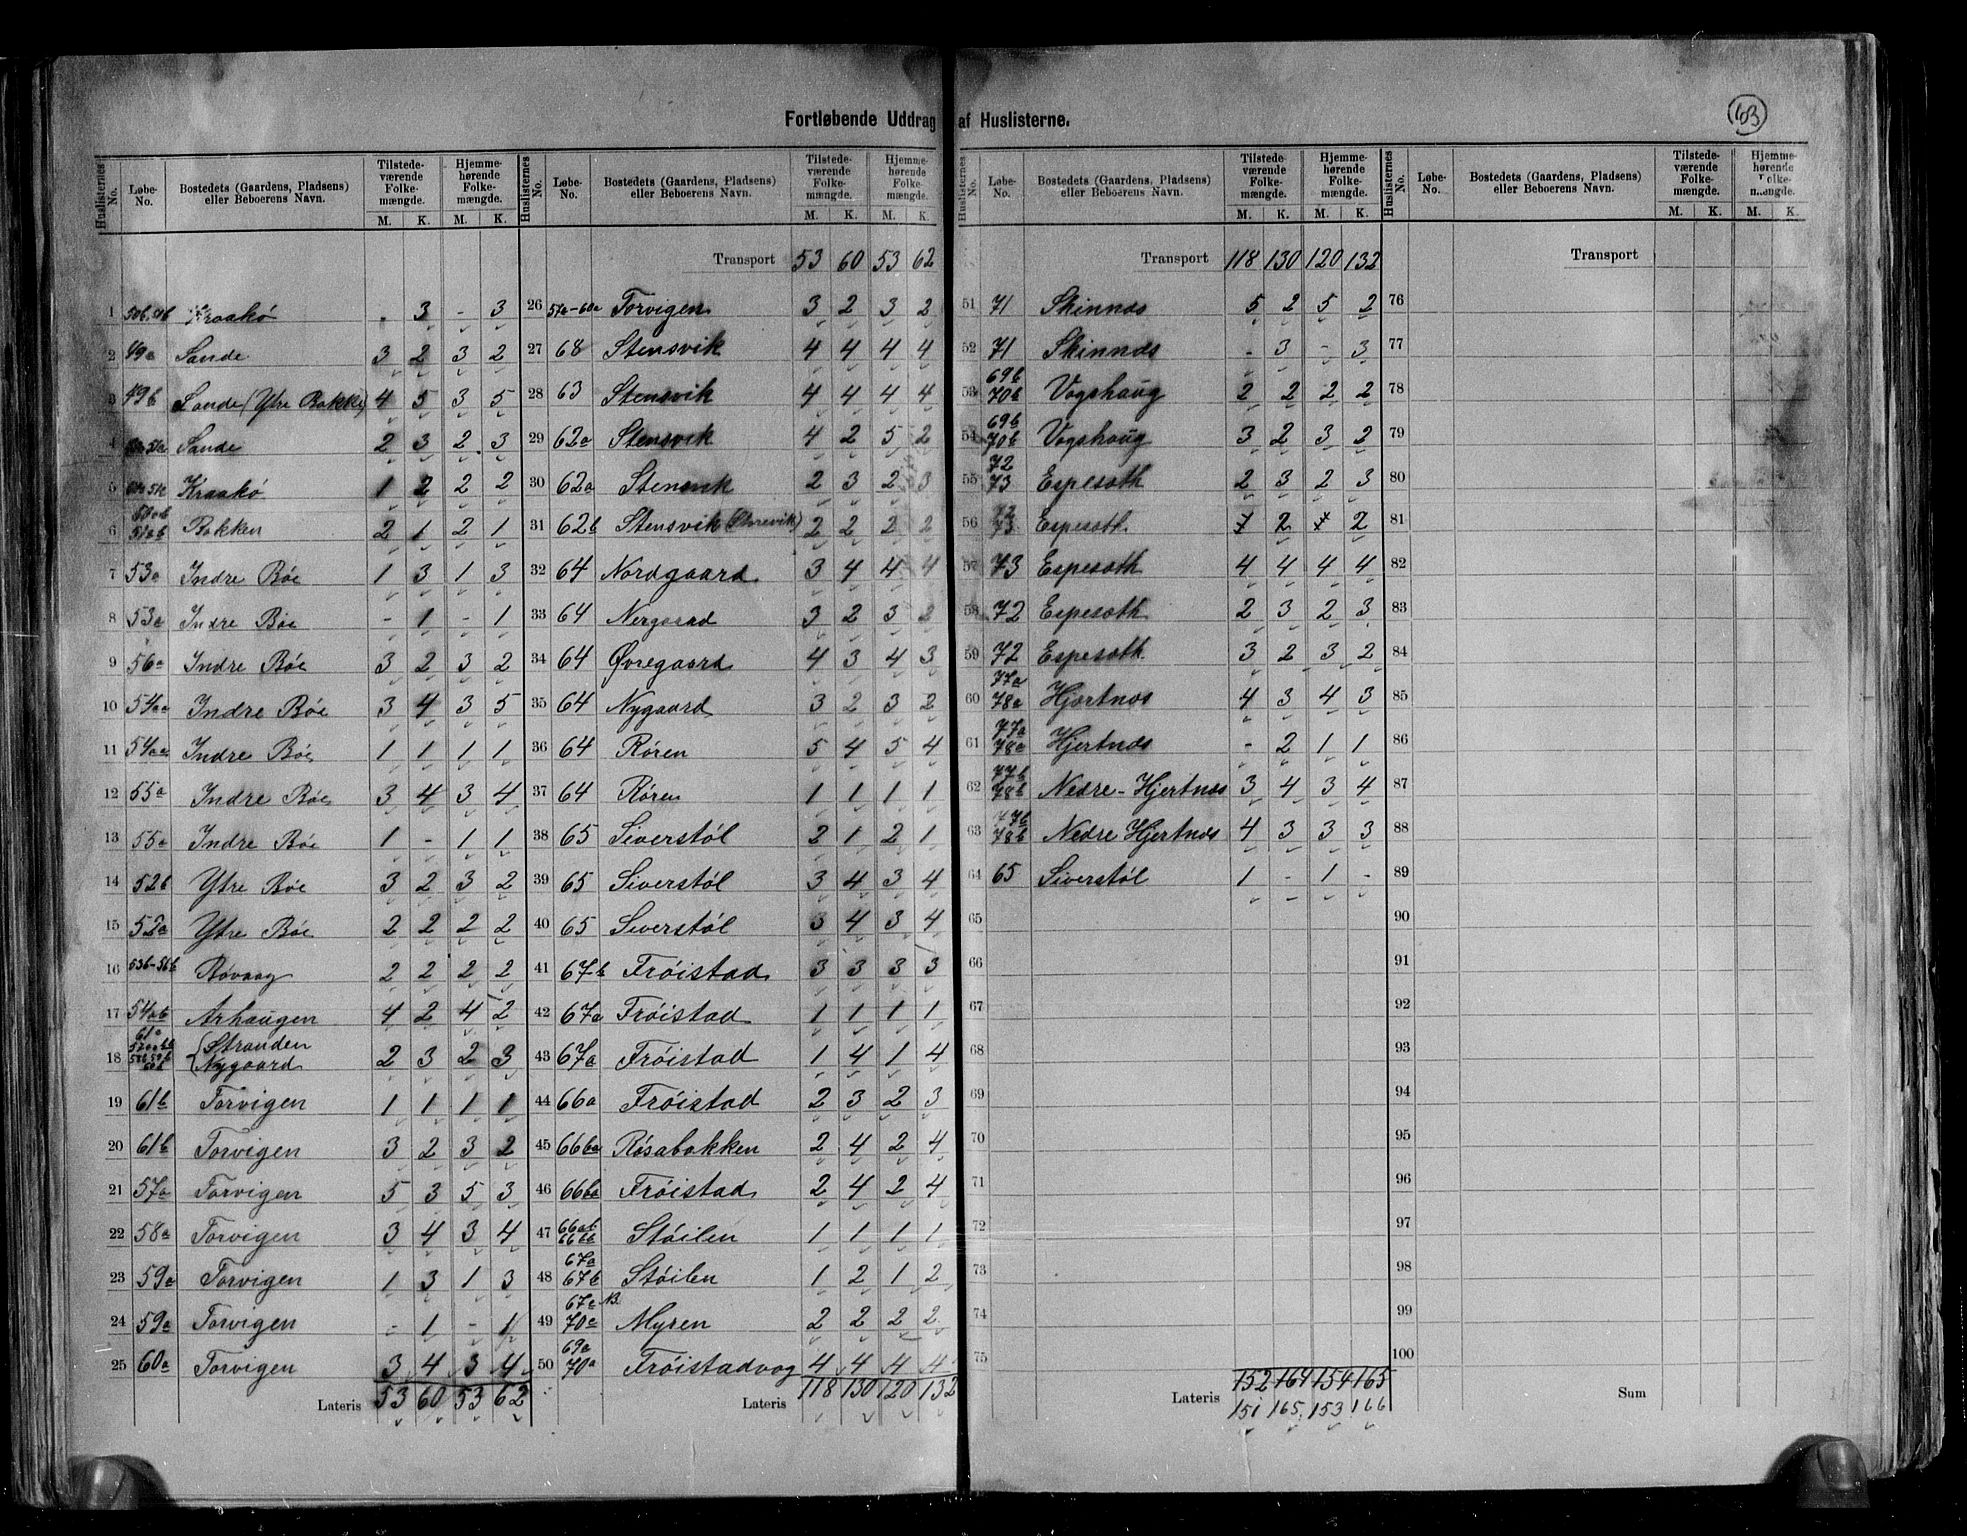 Fortløbende Uddrag af Huslisterne.
63
Huslisternes No. | Løbe-No. | Bostedets (Gaardens, Pladsens) eller Beboerens Navn. | Tilstedeværende Folkemængde. M. K. | Hjemmehørende Folkemængde. M. K.
1 50b.51b Kraakø . 3 - 3
2 49a Sande 3 2 3 2
3 49b Sande (Ytre Bakke) 4 5 3 5
4 Sande 2 3 2 3
5 Kraakø 1 2 2 2
6 Bakken 2 1 2 1
7 53a Indre Böe 1 3 1 3
8 53a Indre Böe - 1 - 1
9 56a Indre Böe 3 2 3 2
10 54aa Indre Böe 3 4 3 5
11 54aa Indre Böe 1 1 1 1
12 55a Indre Böe 3 4 3 4
13 55a Indre Böe 1 - 1 1
14 52b Ytre Böe 3 2 3 2
15 52a Ytre Böe 2 2 2 2
16 Bövaag 2 2 2 2
17 54ab Arhaugen 4 2 4 2
18 Stranden
Nygaard 2 3 2 3
19 61b Torvigen 1 1 1 1
20 61b Torvigen 3 2 3 2
21 57a Torvigen 5 3 5 3
22 58a Torvigen 3 4 3 4
23 59a Torvigen 1 3 1 3
24 59a Torvigen - 1 - 1
25 60a Torvigen 3 4 3 4
Lateris 53 60 53 62
Huslisternes No. | Løbe-No. | Bostedets (Gaardens, Pladsens) eller Beboerens Navn. | Tilstedeværende Folkemængde. M. K. | Hjemmehørende Folkemængde. M. K.
Transport 53 60 53 62
26 57a-60a Torvigen 3 2 3 2
27 68 Stensvik 4 4 4 4
28 63 Stensvik 4 4 4 4
29 62a Stensvik 4 2 5 2
30 62a Stensvik 2 3 2 3
31 62b Stensvik 2 2 2 2
32 64 Nordgaard 3 4 4 4
33 64 Nergaard 3 2 3 2
34 64 Øvregaard 4 3 4 3
35 64 Nygaard 3 2 3 2
36 64 Rören 5 4 5 4
37 64 Rören 1 1 1 1
38 65 Siverstöl 2 1 2 1
39 65 Siverstöl 3 4 3 4
40 65 Siverstöl 3 4 3 4
41 67b Fröistad 3 3 3 3
42 67a Fröistad 1 1 1 1
43 67a Fröistad 1 4 1 4
44 66a Fröistad 2 3 2 3
45 66ba Rösabakken 2 4 2 4
46 66ba Fröistad 2 4 2 4
47 66ab
66bb Stöilen 1 1 1 1
48 67a
67b Stöilen 1 2 1 2
49 67a NB.
70a Myren 2 2 2 2
50 69a
70a Fröistadvog 4 4 4 4
Lateris 118 130 120 132
Huslisternes No. | Løbe-No. | Bostedets (Gaardens, Pladsens) eller Beboerens Navn. | Tilstedeværende Folkemængde. M. K. | Hjemmehørende Folkemængde. M. K.
Transport 118 130 120 132
51 71 Skinnæs 5 2 5 2
52 71 Skinnæs - 3 - 3
53 69b
70b Vogshaug 2 2 2 2
54 69b
70b Vogshaug 3 2 3 2
55 72
73 Espesæth 2 3 2 3
56 72
73 Espesæth 2 2
57 73 Espesæth 4 4 4 4
58 72 Espesæth 2 3 2 3
59 72 Espesæth 3 2 3 2
60 77a
78a Hjertnæs 4 3 4 3
61 77a
78a Hjertnæs - 2 1 1
62 77b
78b Nedre-Hjertnæs 3 4 3 4
63 77b
78b Nedre Hjertnæs 4 3 3 3
64 65 Siverstöl 1 - 1 -
65
66
67
68
69
70
71
72
73
74
75
Lateris 152 164 154 165
151 165. 153 166
Huslisternes No. | Løbe-No. | Bostedets (Gaardens, Pladsens) eller Beboerens Navn. | Tilstedeværende Folkemængde. M. K. | Hjemmehørende Folkemængde. M. K.
Transport
76
77
78
79
80
81
82
83
84
85
86
87
88
89
90
91
92
93
94
95
96
97
98
99
100
Sum